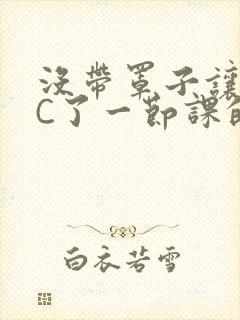 沒帶罩子讓
C了一節課
白衣若雪